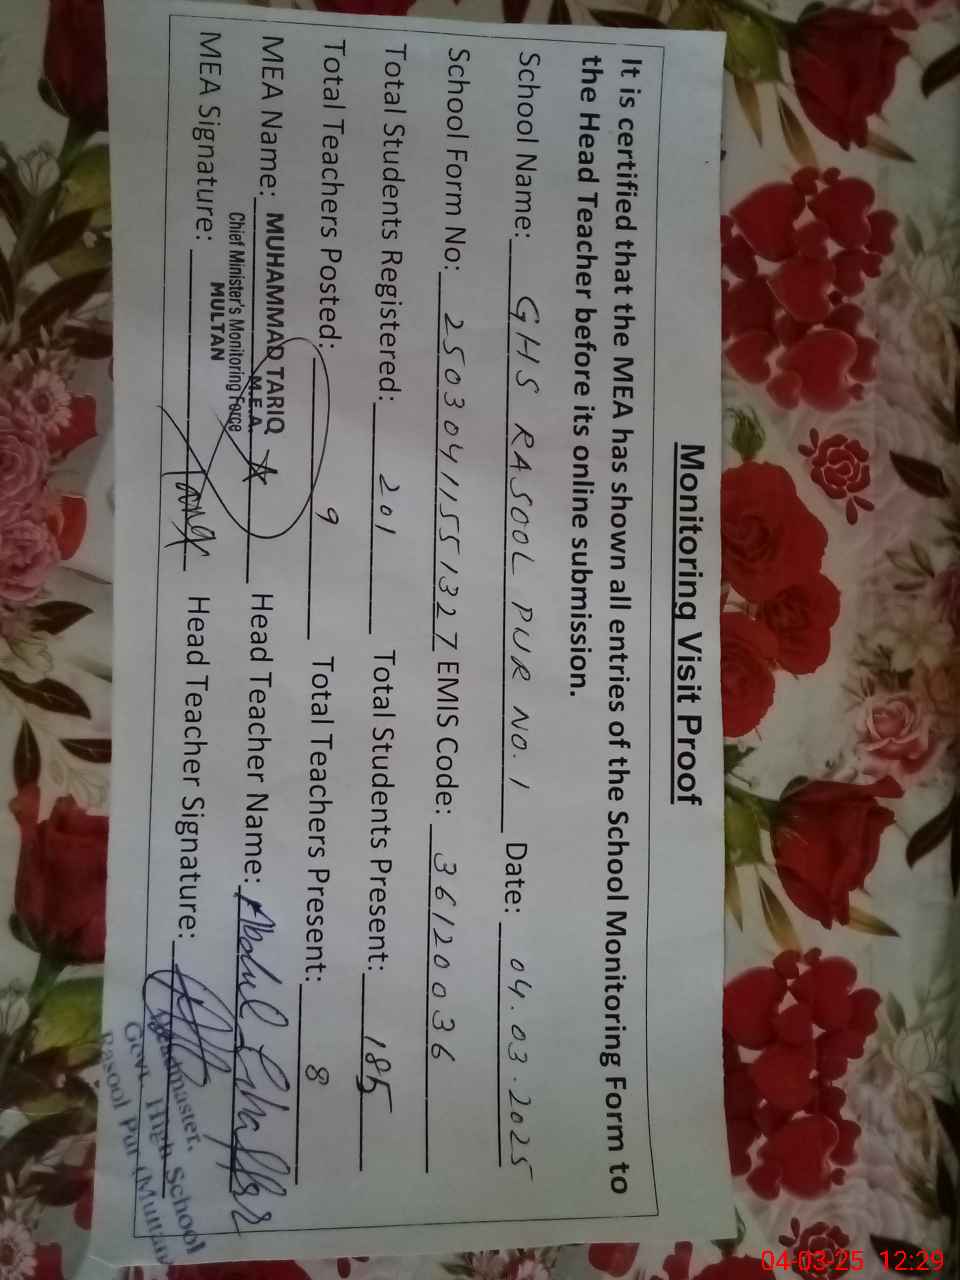 Monitoring Visit Proof
It is certified that the MEA has shown all entries of the School Monitoring Form to
the Head Teacher before its online submission.
School Name: GHS RASOOL PUR NO. 1 Date: 04.03.2025
School Form No: 25030411551327 EMIS Code: 36120036
Total Students Registered: 201 Total Students Present: 185
Total Teachers Posted: 9 Total Teachers Present: 8
MEA Name: MUHAMMAD TARIQ Head Teacher Name: Abdul Ghaffar
M.E.A.
Chief Minister's Monitoring Force
MULTAN
MEA Signature: Head Teacher Signature:
Headmaster,
Govt. High School
Rasool Pur (Multan)
04-03-25 12:29